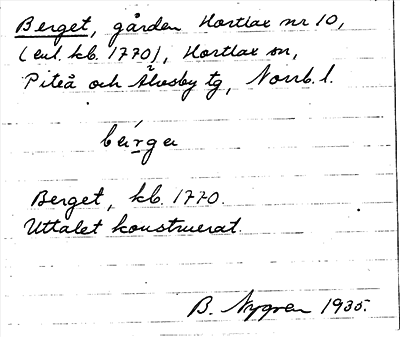 Berget, gården Hortlax nr 10,
(enl. kb. 1770), Hortlax sn,
Piteå och Älvsby tg, Norrb. l.
bérga
Berget, kb. 1770.
Uttalet konstruerat.
B. Nygren 1935.